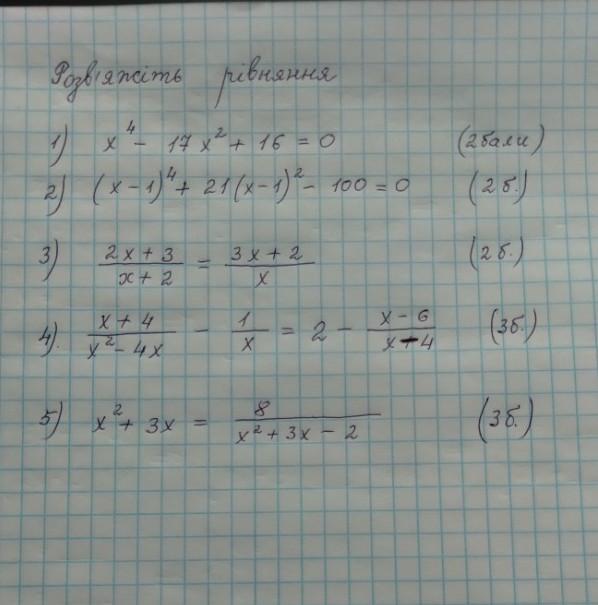 Розв'яжіть рівняння
1) x⁴ - 17x² + 16 = 0 (2 бали)
2) (x - 1)⁴ + 21(x - 1)² - 100 = 0 (2 б.)
3) (2x + 3)/(x + 2) = (3x + 2)/x (2 б.)
4). (x + 4)/(x² - 4x) - 1/x = 2 - (x - 6)/(x - 4) (3б.)
5) x² + 3x = 8/(x² + 3x - 2) (3б.)